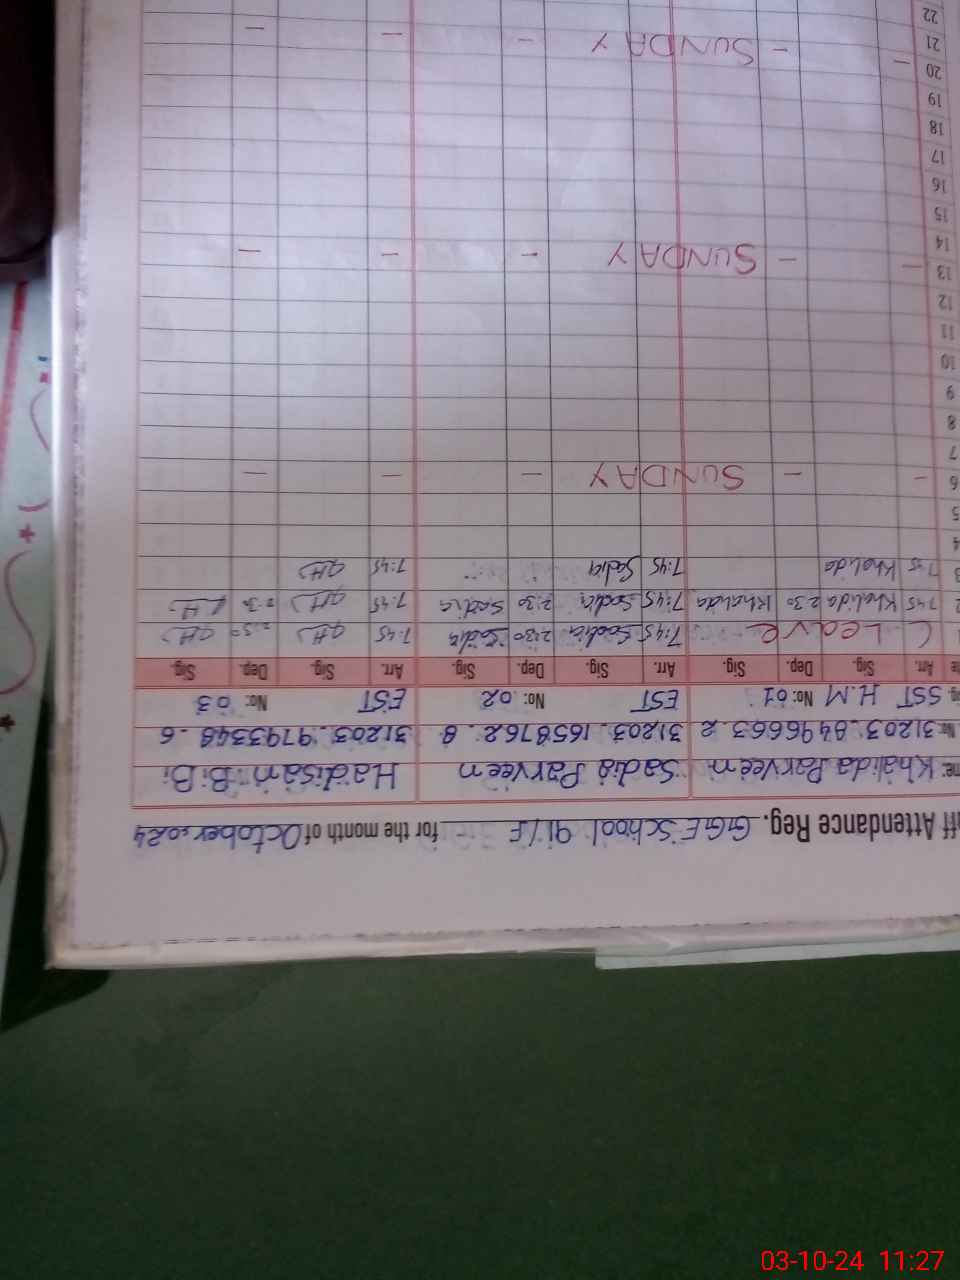 ff Attendance Reg. GGE School 91/F for the month of October 2024
me: Khalida Parveen Sadia Parveen Hadisan BiBi
Nr: 31203.8496663.2 31203.1658762.8 31203.9793348.6
SST H.M No: 01 EST No: 02 EST No: 03
te Arr. Sig. Dep. Sig. Arr. Sig. Dep. Sig. Arr. Sig. Dep. Sig.
1 C Leave 7:45 Sadia 2:30 Sadia 7:45 2:30
2 7:45 Khalida 2:30 Khalida 7:45 Sadia 2:30 Sadia 7:45 2:30
3 7:45 Khalida 7:45 Sadia 7:45
4
5
6 - - SUNDAY - - -
7
8
9
10
11
12
13 - - SUNDAY - - -
14
15
16
17
18
19
20 - - SUNDAY - - -
21
22
03-10-24 11:27